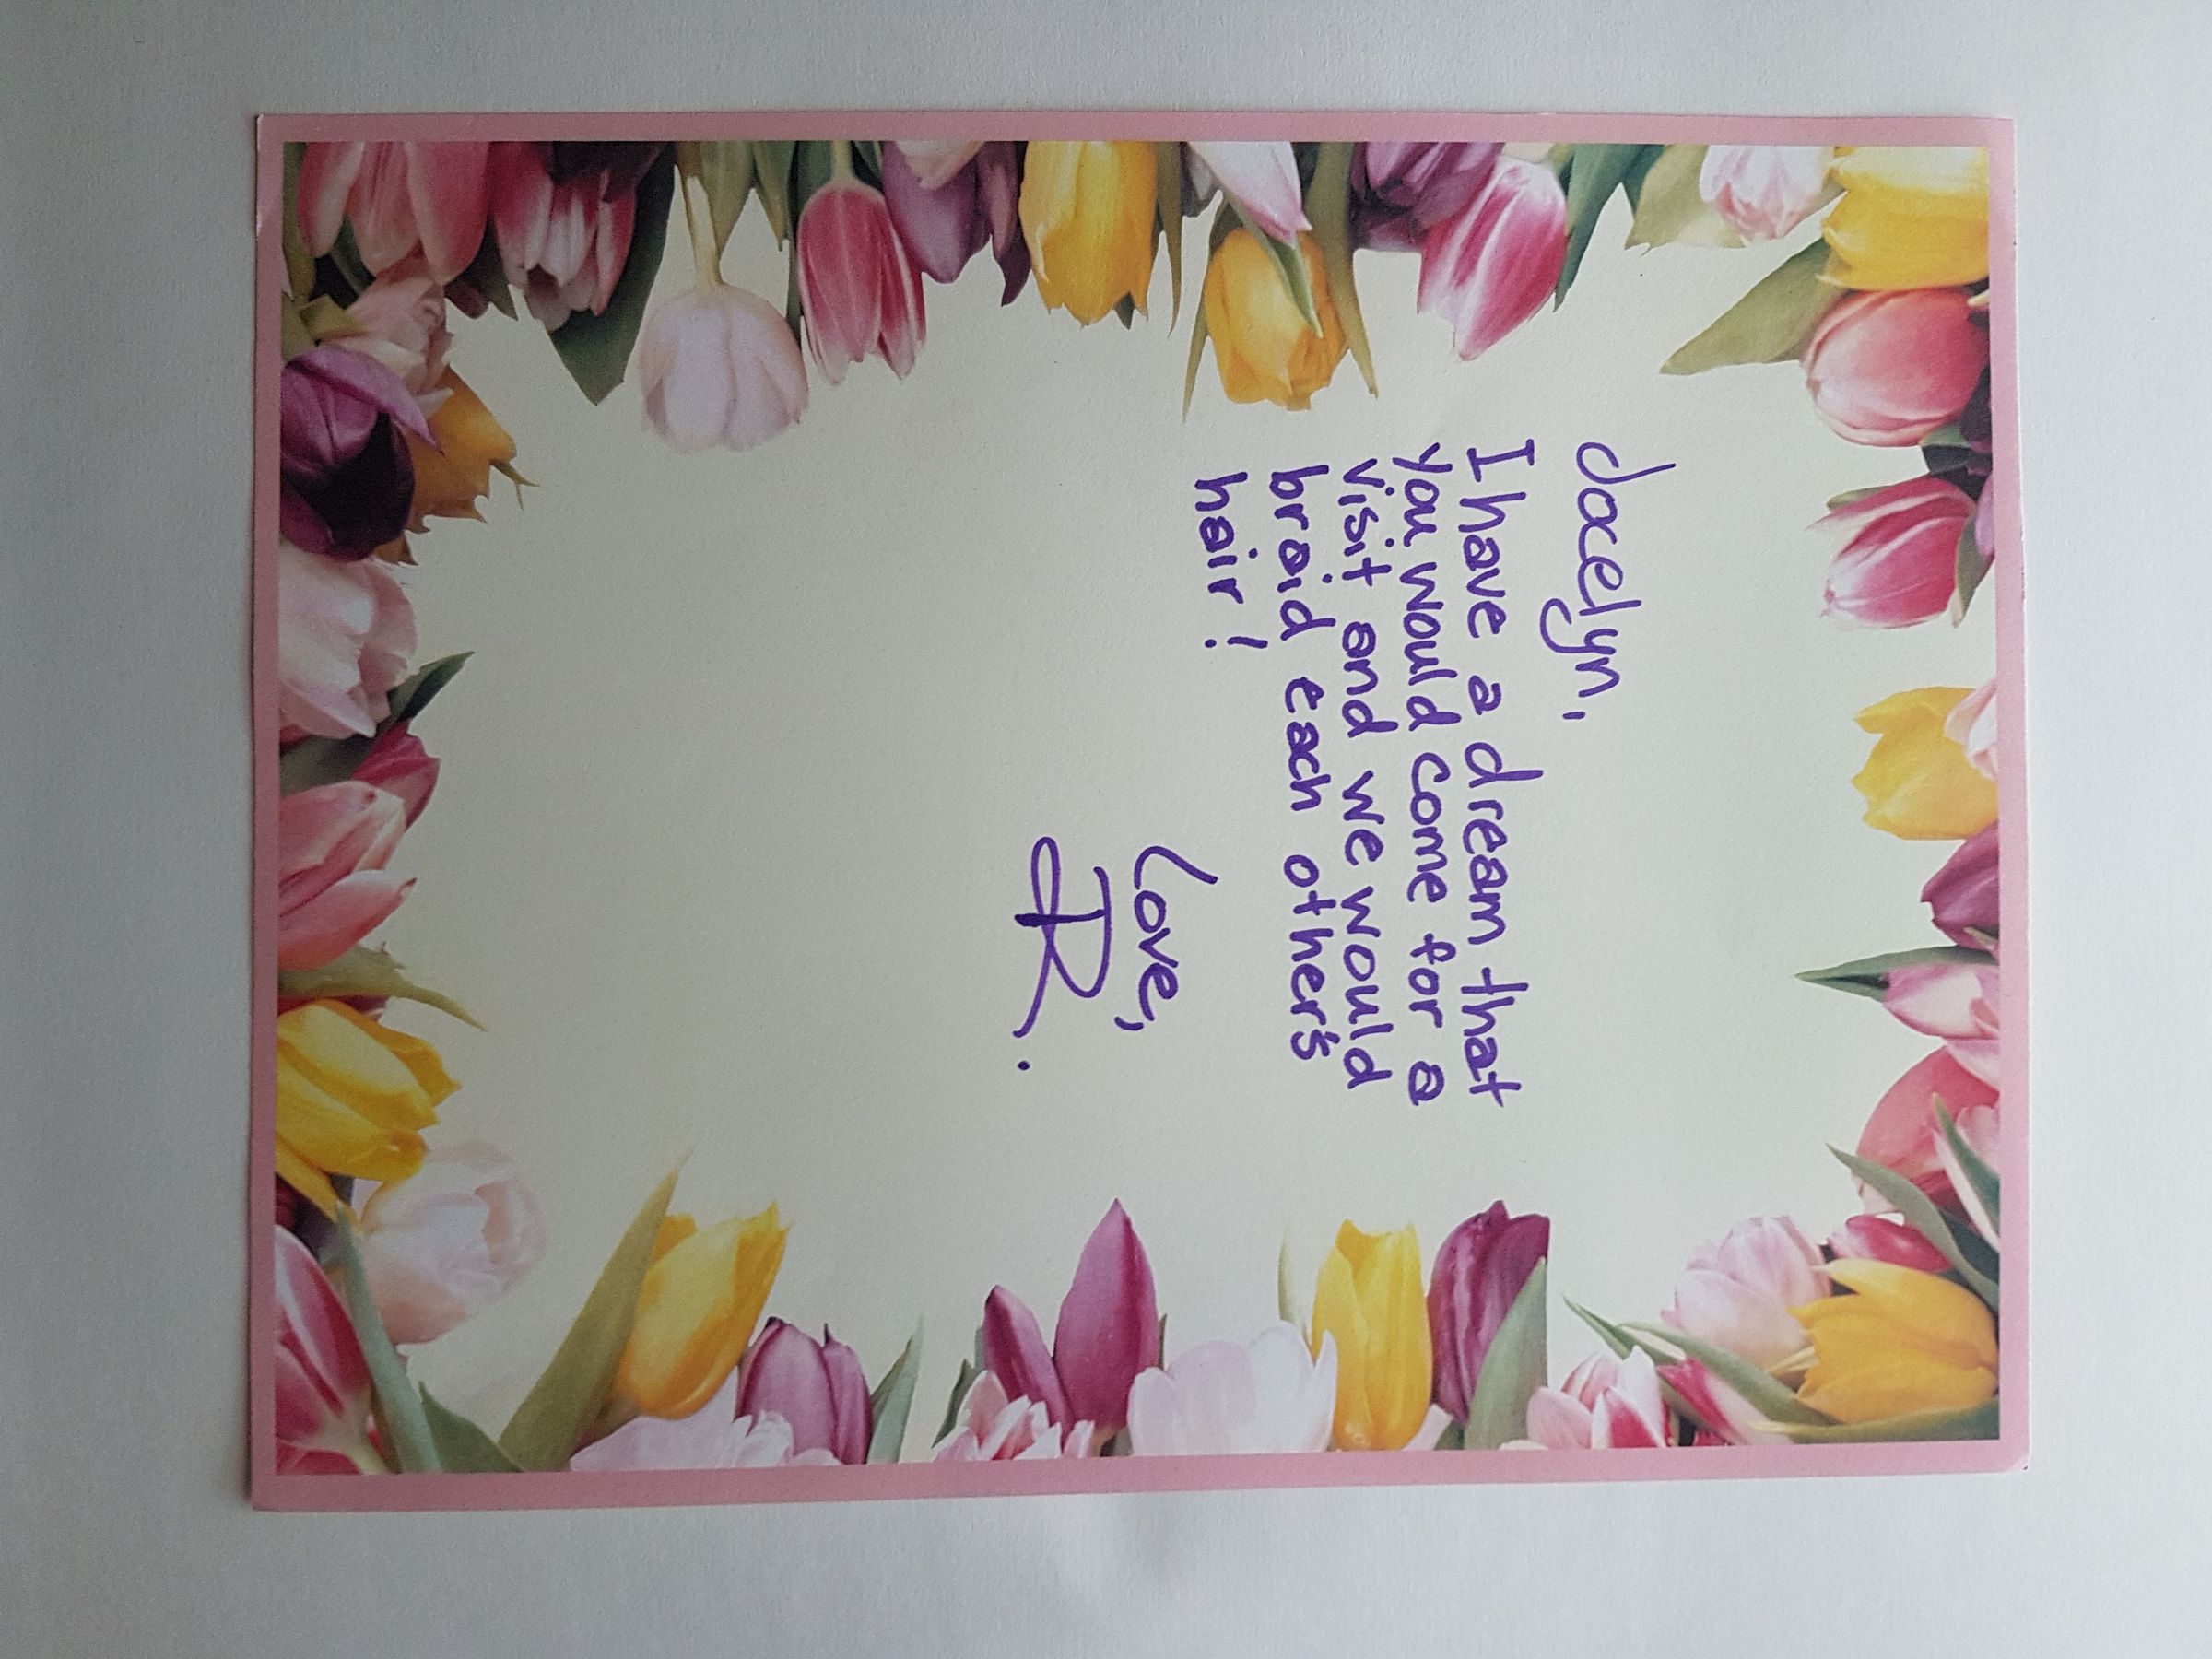 Jocelyn,
I have a dream that
you would come for a
visit and we would
braid each other's
hair!
Love,
R.